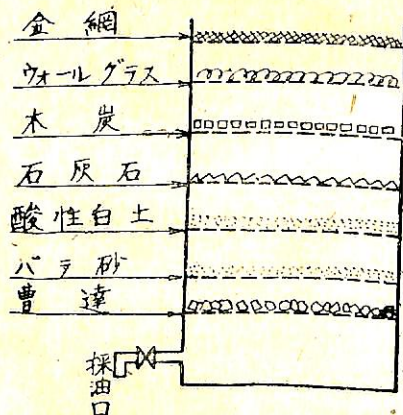 金網
ウォールグラス
木炭
石灰石
酸性白土
バラ砂
曹達
採油口